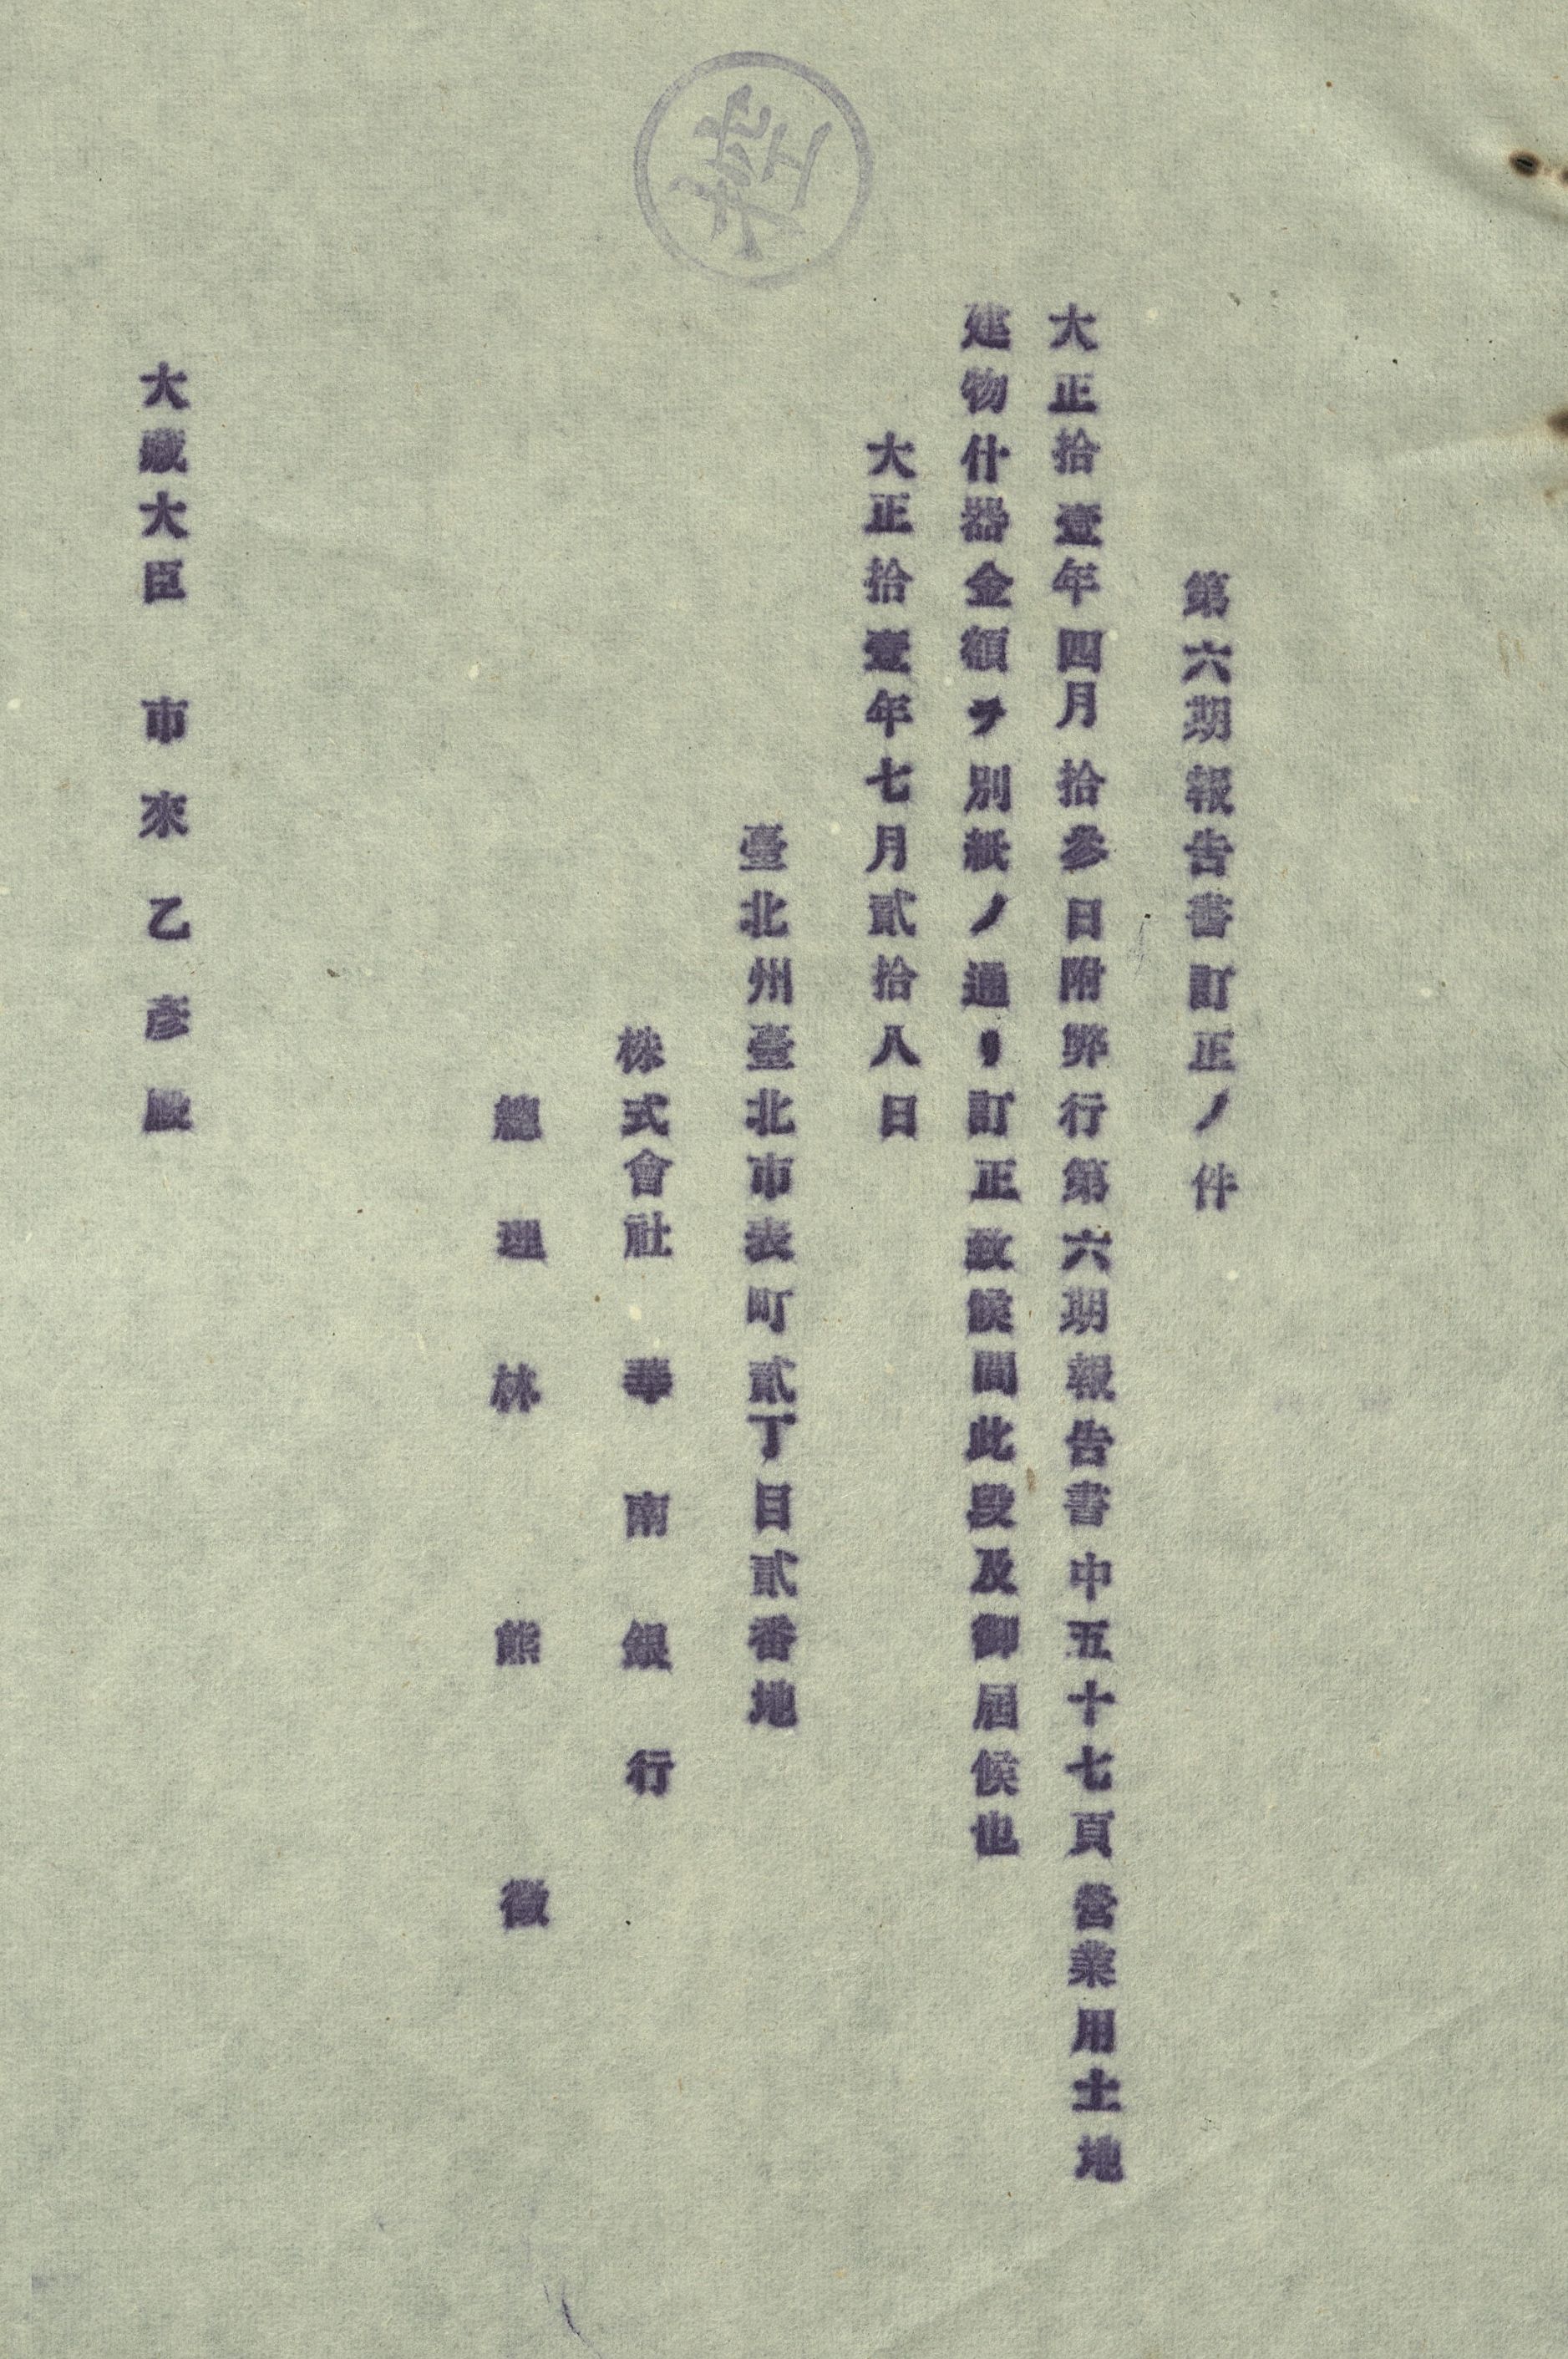 第六期報告書訂正ノ件
大正拾壹年四月拾參日附弊行第六期報告書中五十七頁營業用土地
建物什器金額ヲ別紙ノ通リ訂正致候間此段及御屆候也
大正拾壹年七月貳拾八日
臺北州臺北市表町貳丁目貳番地
株式會社 華南銀行
總理 林熊徵
大藏大臣 市來乙彥殿